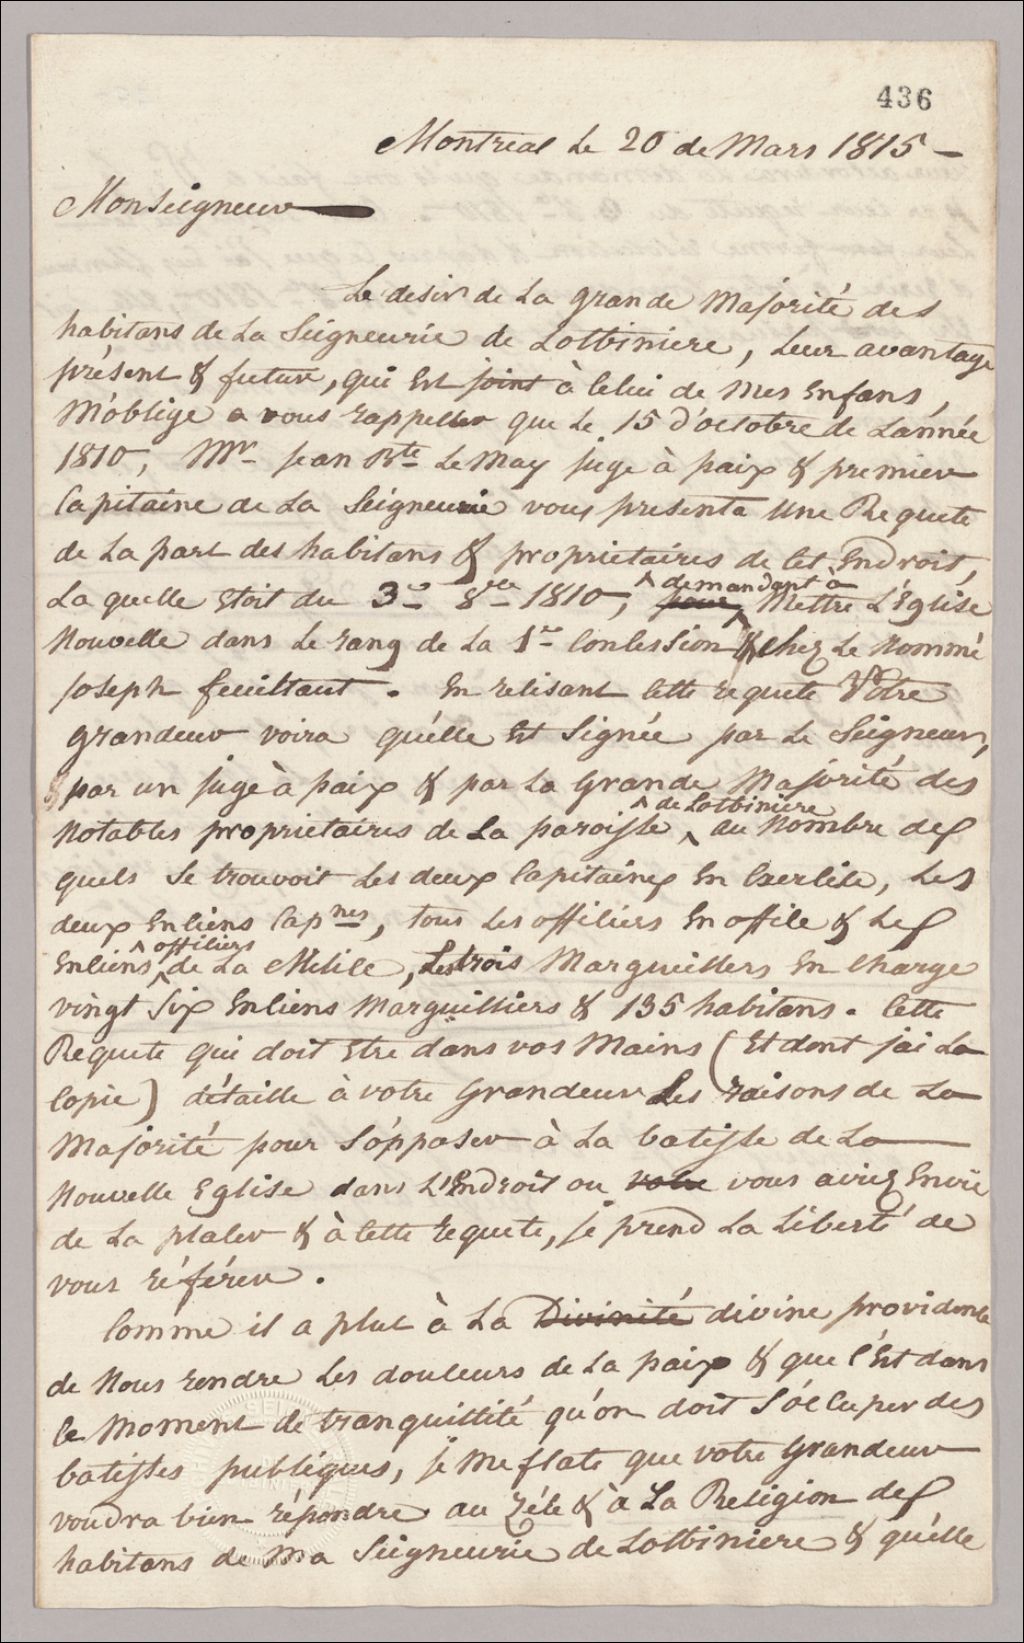 436
Montreal Le 20 de Mars 1815 -
Monseigneur
Le desir de La grande Majorité des
habitans de La Seigneurie de Lotbiniere, Leur avantage
présent & future, qui Est joint à Celui de Mes Enfans,
M'oblige a vous rappeller que Le 15 d'octobre de L'année
1810, Mr. Jean Bte Le May juge à paix & premier
Capitaine de La Seigneurie vous presenta Une Requete
de La part des habitans & proprietaires de Cet Endroit,
La quelle Etoit du 3e 8bre 1810, pour, ^demandant à Mettre L'Eglise
Nouvelle dans Le rang de La 1re Concession & Chez Le Nommé
Joseph feuiltaut. En relisant Cette requete Votre
grandeur voira qu'elle Est Signée par Le Seigneur,
& par un juge à paix & par La Grande Majorité des
Notables proprietaires de La paroisse ^de Lotbiniere, au Nombre des
quels Se trouvoit Les deux Capitaines En Exercice, Les
deux Enciens Capnes, tous Les officiers En office & Les
Enciens ^officiers de La Milice, Les trois Marguillers En Charge
vingt Six Enciens Marguilliers & 135 habitans. Cette
Requete qui doit Etre dans vos Mains (Et dont j'ai La
Copie) détaille à votre Grandeur Les raisons de La
Majorité pour S'opposer à La batisse de La
Nouvelle Eglise dans L'Endroit ou votre vous aviez Envie
de La placer & à Cette requete, je prend La Liberté de
vous référer.
Comme il a plut à La Divinité divine providence
de Nous rendre Les douceurs de La paix & que C'Est dans
Ce Moment de tranquillité qu'on doit S'occuper des
batisses publiques, je Me flate que votre Grandeur
voudra bien répondre au Zéle & à La Religion des
habitans de Ma Seigneurie de Lotbiniere & qu'elle